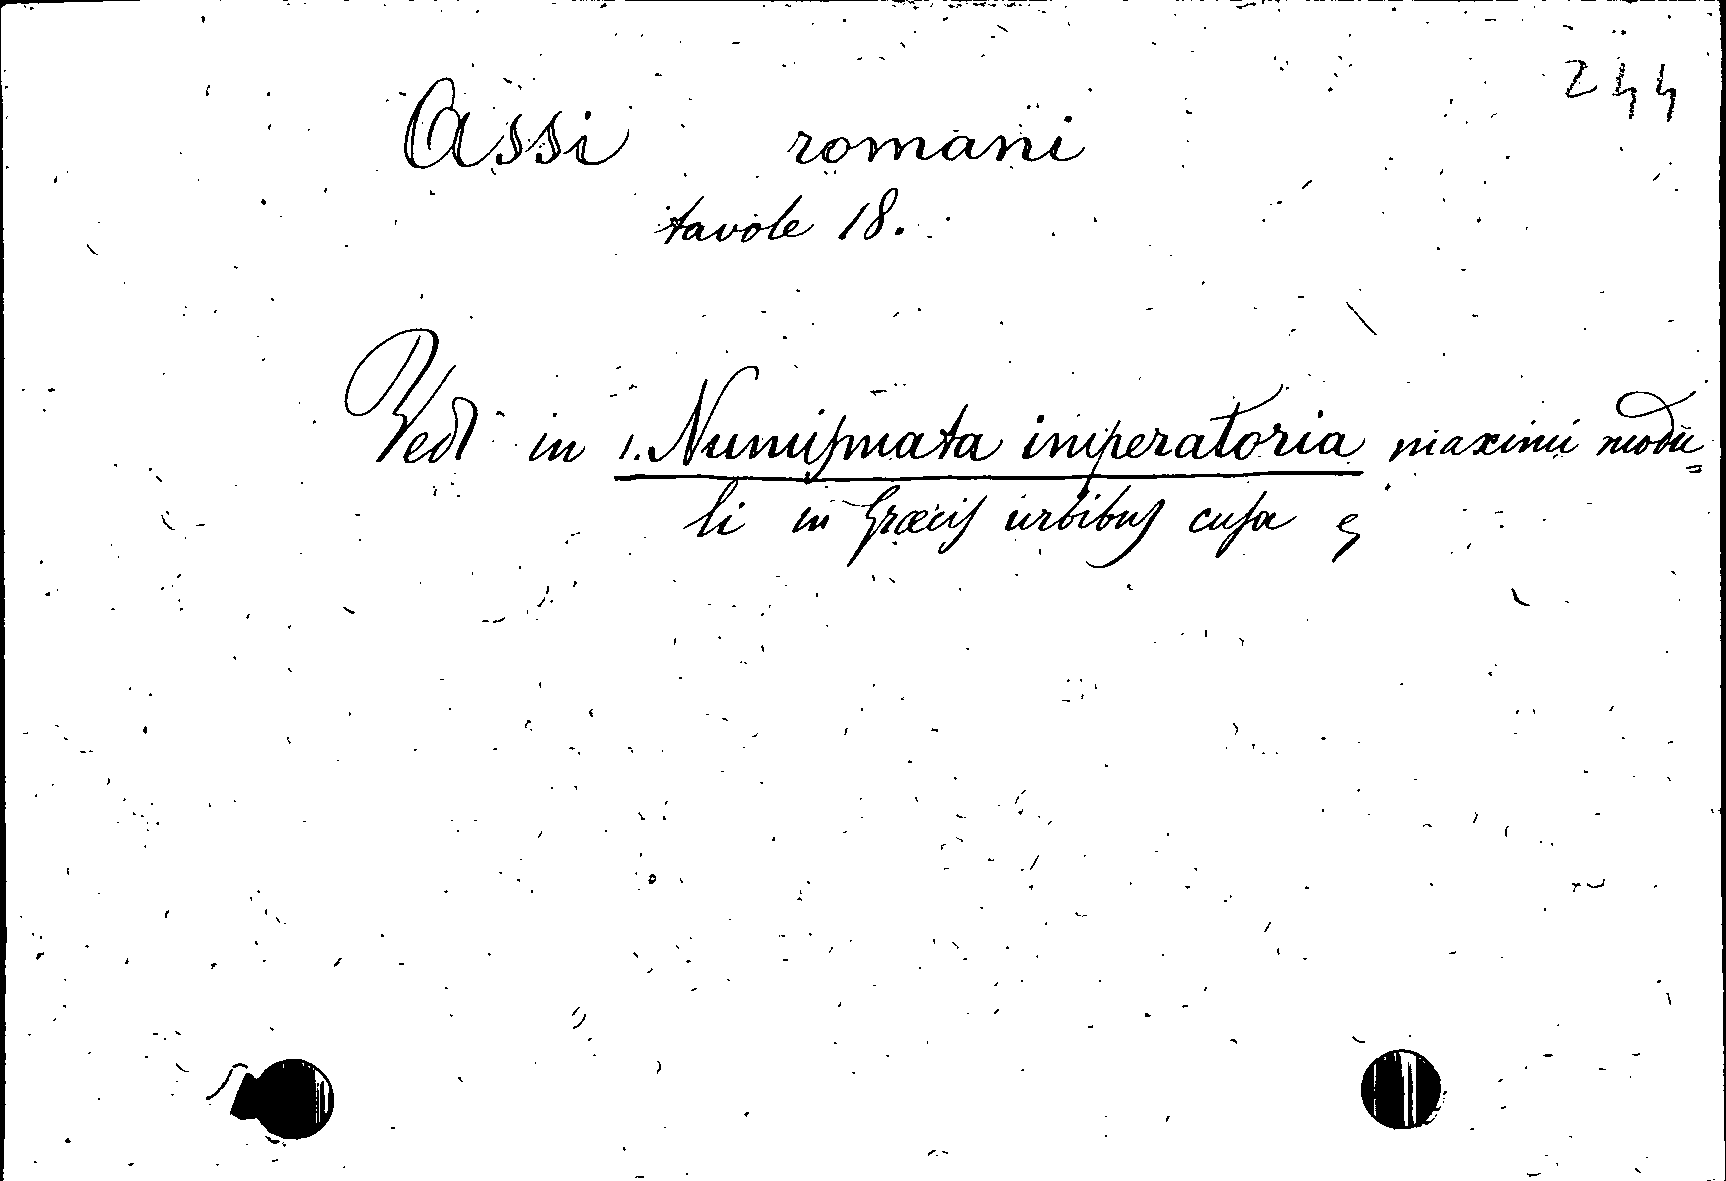 244
Assi romani
tavole 18.
Vedi in 1. Numiſmata imperatoria maximi modu=
li in Græciſ urbibuſ cuſa